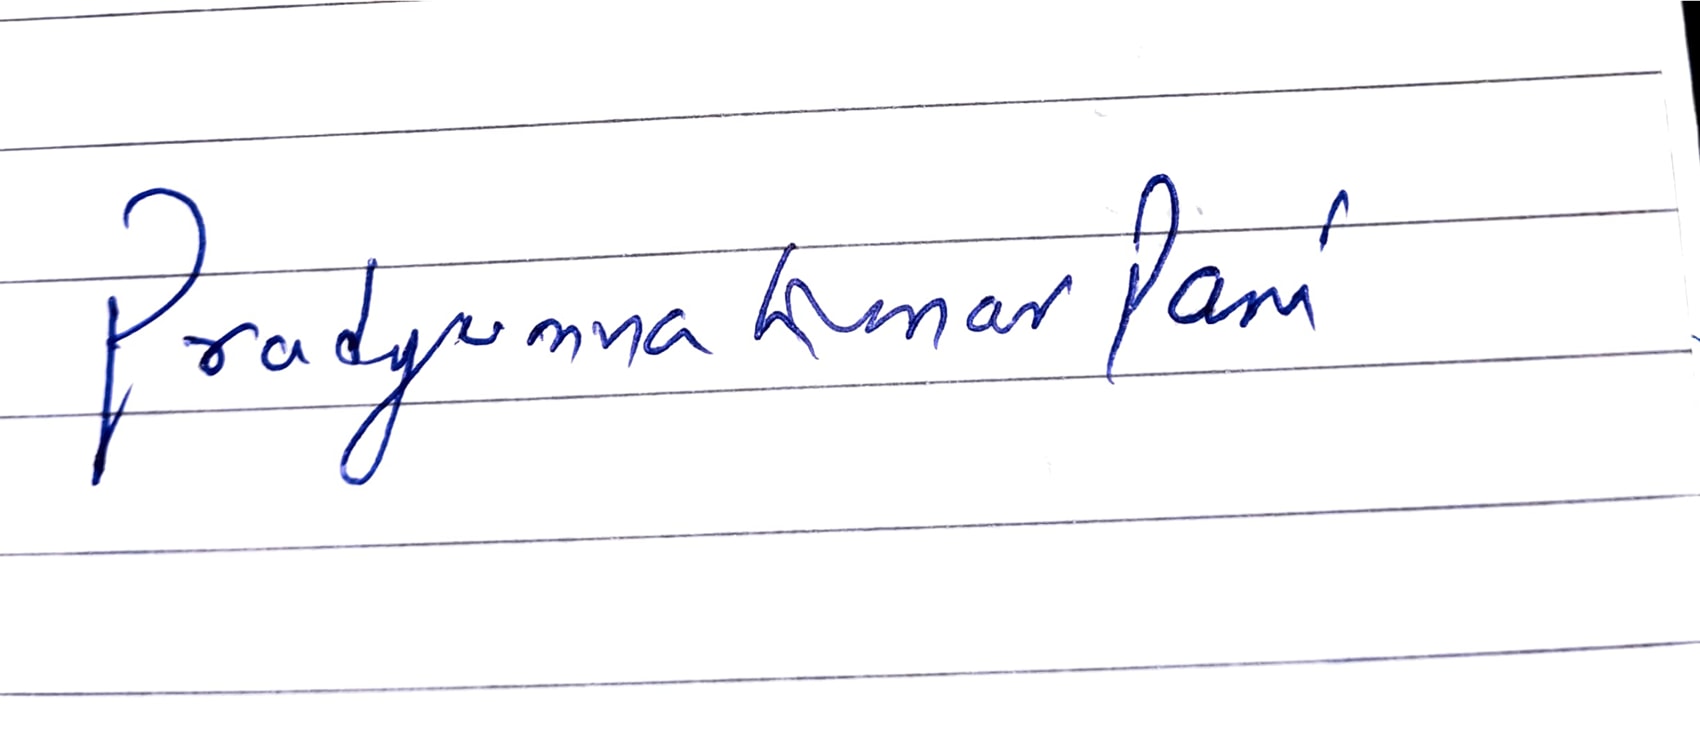 Pradyumna Kumar Pani